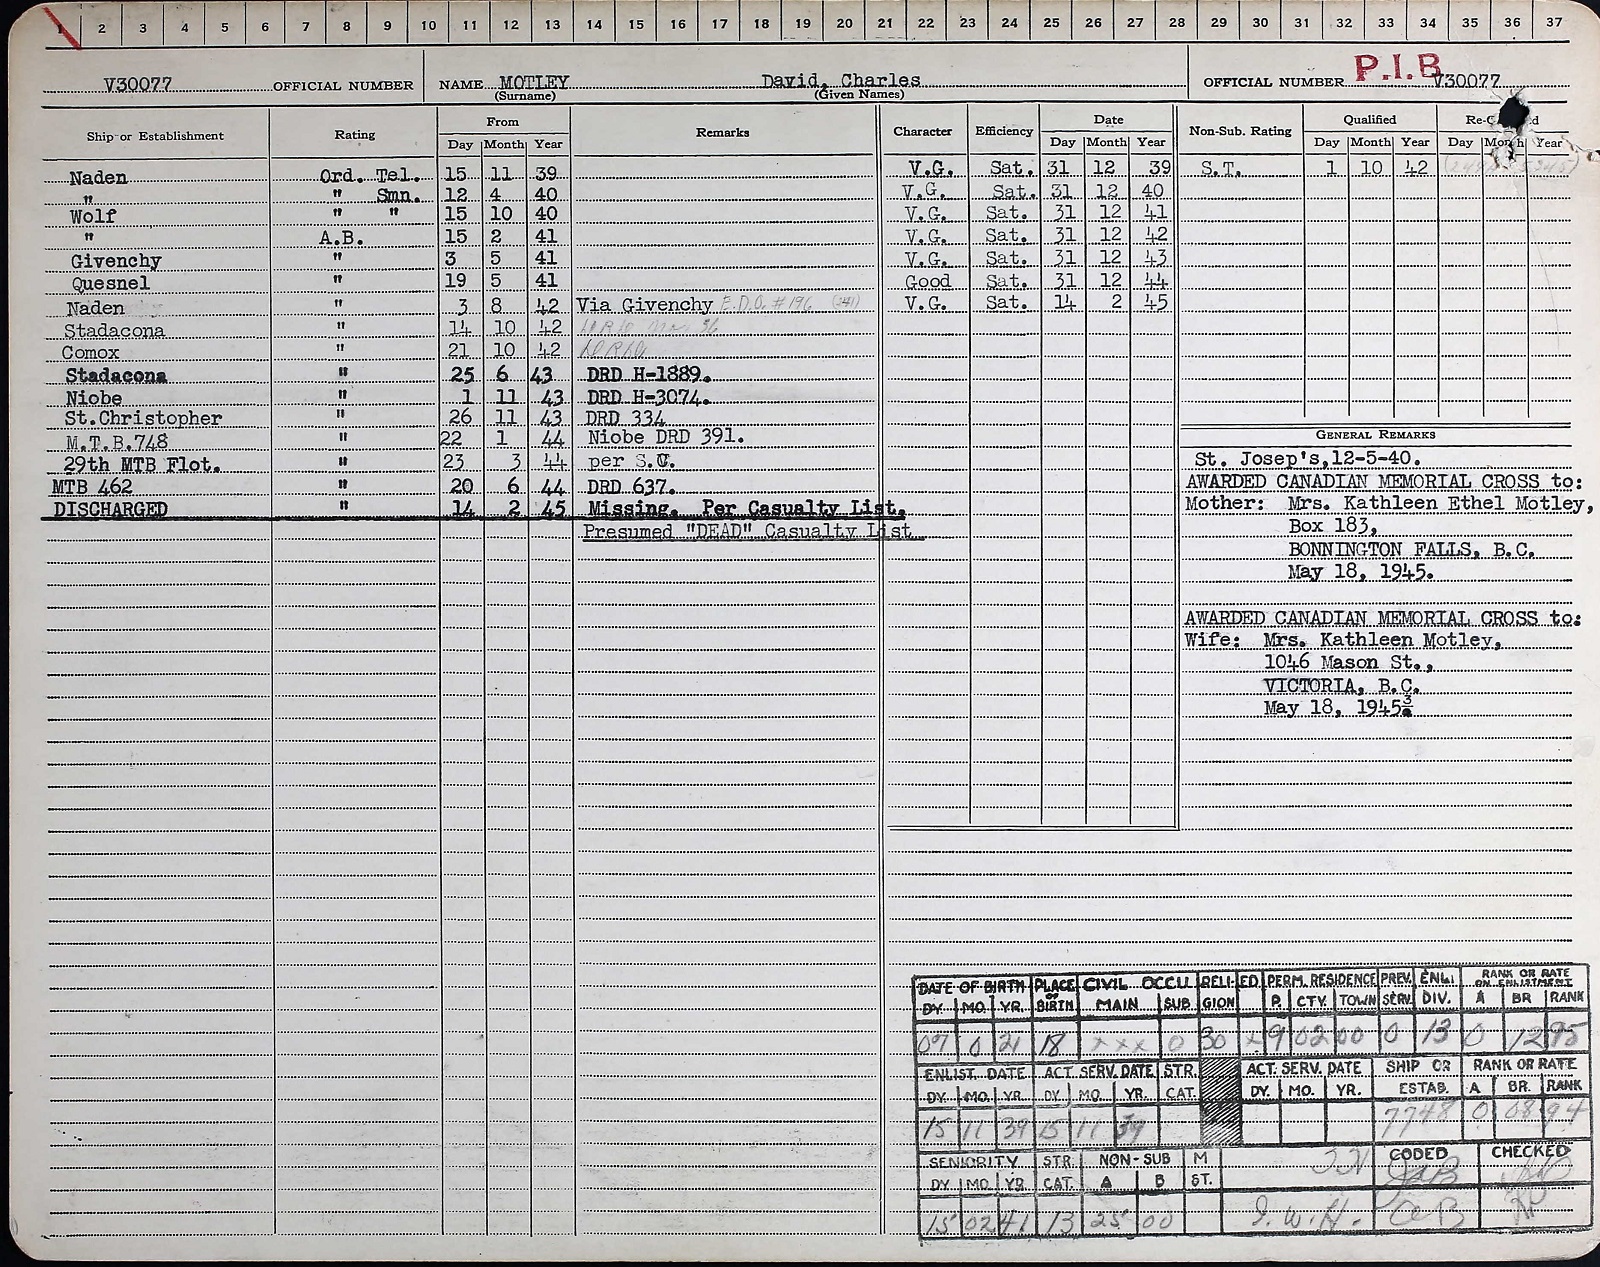 1 2 3 4 5 6 7 8 9 10 11 12 13 14 15 16 17 18 19 20 21 22 23 24 25 26 27 28 29 30 31 32 33 34 35 36 37
P.I.B
V30077 OFFICIAL NUMBER NAME MOTLEY David, Charles OFFICIAL NUMBER V30077
(Surname) (Given Names)
Ship or Establishment Rating From Remarks Character Efficiency Date Non-Sub. Rating Qualified
Day Month Year Day Month Year Day Month Year Day Month Year
Naden Ord. Tel. 15 11 39 V.G. Sat. 31 12 39 S.T. 1 10 42
" " Smn. 12 4 40 V.G. Sat. 31 12 40
Wolf " " 15 10 40 V.G. Sat. 31 12 41
" A.B. 15 2 41 V.G. Sat. 31 12 42
Givenchy " 3 5 41 V.G. Sat. 31 12 43
Quesnel " 19 5 41 Good Sat. 31 12 44
Naden " 3 8 42 Via Givenchy E.D.O. #196 (341) V.G. Sat. 14 2 45
Stadacona " 14 10 42
Comox " 21 10 42
Stadacona " 25 6 43 DRD H-1889.
Niobe " 1 11 43 DRD H-3074.
St.Christopher " 26 11 43 DRD 334
M.T.B.748 " 22 1 44 Niobe DRD 391.
29th MTB Flot. " 23 3 44 per S.C.
MTB 462 " 20 6 44 DRD 637.
DISCHARGED " 14 2 45 Missing. Per Casualty List.
Presumed "DEAD" Casualty List
GENERAL REMARKS
St. Josep's,12-5-40.
AWARDED CANADIAN MEMORIAL CROSS to:
Mother: Mrs. Kathleen Ethel Motley,
Box 183,
BONNINGTON FALLS, B.C.
May 18, 1945.
AWARDED CANADIAN MEMORIAL CROSS to:
Wife: Mrs. Kathleen Motley,
1046 Mason St.,
VICTORIA, B.C.
May 18, 1945
DATE OF BIRTH PLACE OF BIRTH CIVIL OCCU. RELI-GION ED PERM. RESIDENCE PREV. SERV. ENL. DIV. RANK OR RATE ON ENLISTMENT
DY. MO. YR. MAIN SUB. P. CTY. TOWN A BR RANK
07 0 21 18 XXX 0 30 X 9 02 00 0 13 0 12 95
ENLIST. DATE ACT. SERV. DATE STR. ACT. SERV. DATE SHIP OR RANK OR RATE
DY. MO. YR. DY. MO. YR. CAT. DY. MO. YR. ESTAB. A BR. RANK
15 11 39 15 11 39 7748 0 08 94
SENIORITY STR. NON-SUB M CODED CHECKED
DY. MO. YR. CAT. A B ST.
15 02 41 13 25 00 I.W.H.